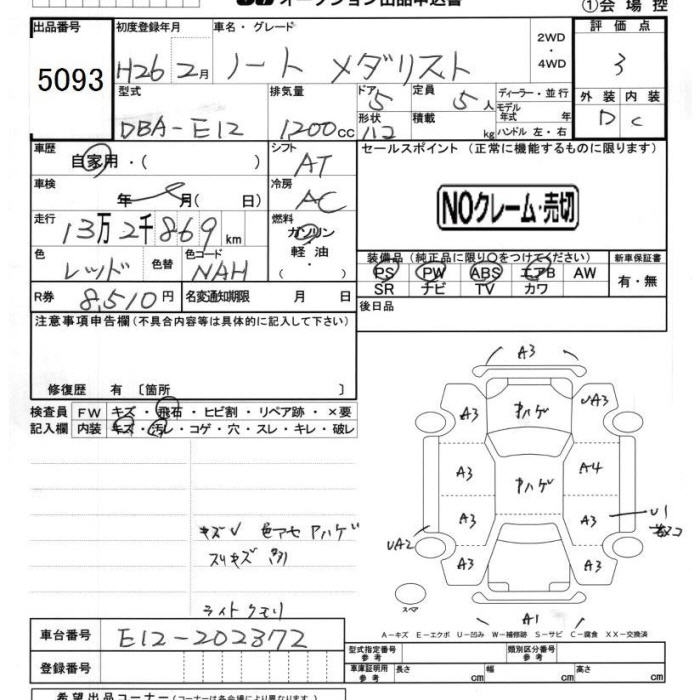 オークション出品申込書
①会場控
出品番号 5093
初度登録年月 H26 2月
車名・グレード ノート メダリスト
2WD・4WD
評価点 3
型式 DBA-E12
排気量 1200cc
ドア 5
形状
定員 5人
積載 kg
ディーラー・並行
モデル年式 年
ハンドル 左・右
外装 D 内装 C
車歴 自家用・( )
シフト AT
セールスポイント (正常に機能するものに限ります)
車検 年 月( 日)
冷房 AC
NOクレーム・売切
走行 13万2千869km
燃料 ガソリン・軽油・( )
色 レッド 色替 色コード NAH
装備品 (純正品に限り○をつけてください) 新車保証書
PS PW ABS エアB AW 有・無
SR ナビ TV カワ
R券 8,510円 名変通知期限 月 日
後日品
注意事項申告欄 (不具合内容等は具体的に記入して下さい)
修復歴 有 〔箇所 〕
検査員 FW キズ・飛石・ヒビ割・リペア跡・×要
記入欄 内装 キズ・汚レ・コゲ・穴・スレ・キレ・破レ
A3
A3 UA3
A3 A4
A3 A3
U1
UA2
A3 A3
スペア
A1
ライトクモリ
A-キズ E-エクボ U-凹み W-補修跡 S-サビ C-腐食 XX-交換済
車台番号 E12-202372
登録番号
型式指定番号 参考 類別区分番号 参考
車庫証明用 参考 長さ cm 幅 cm 高さ cm
希望出品コーナー (コーナーは各会場により異なります。)